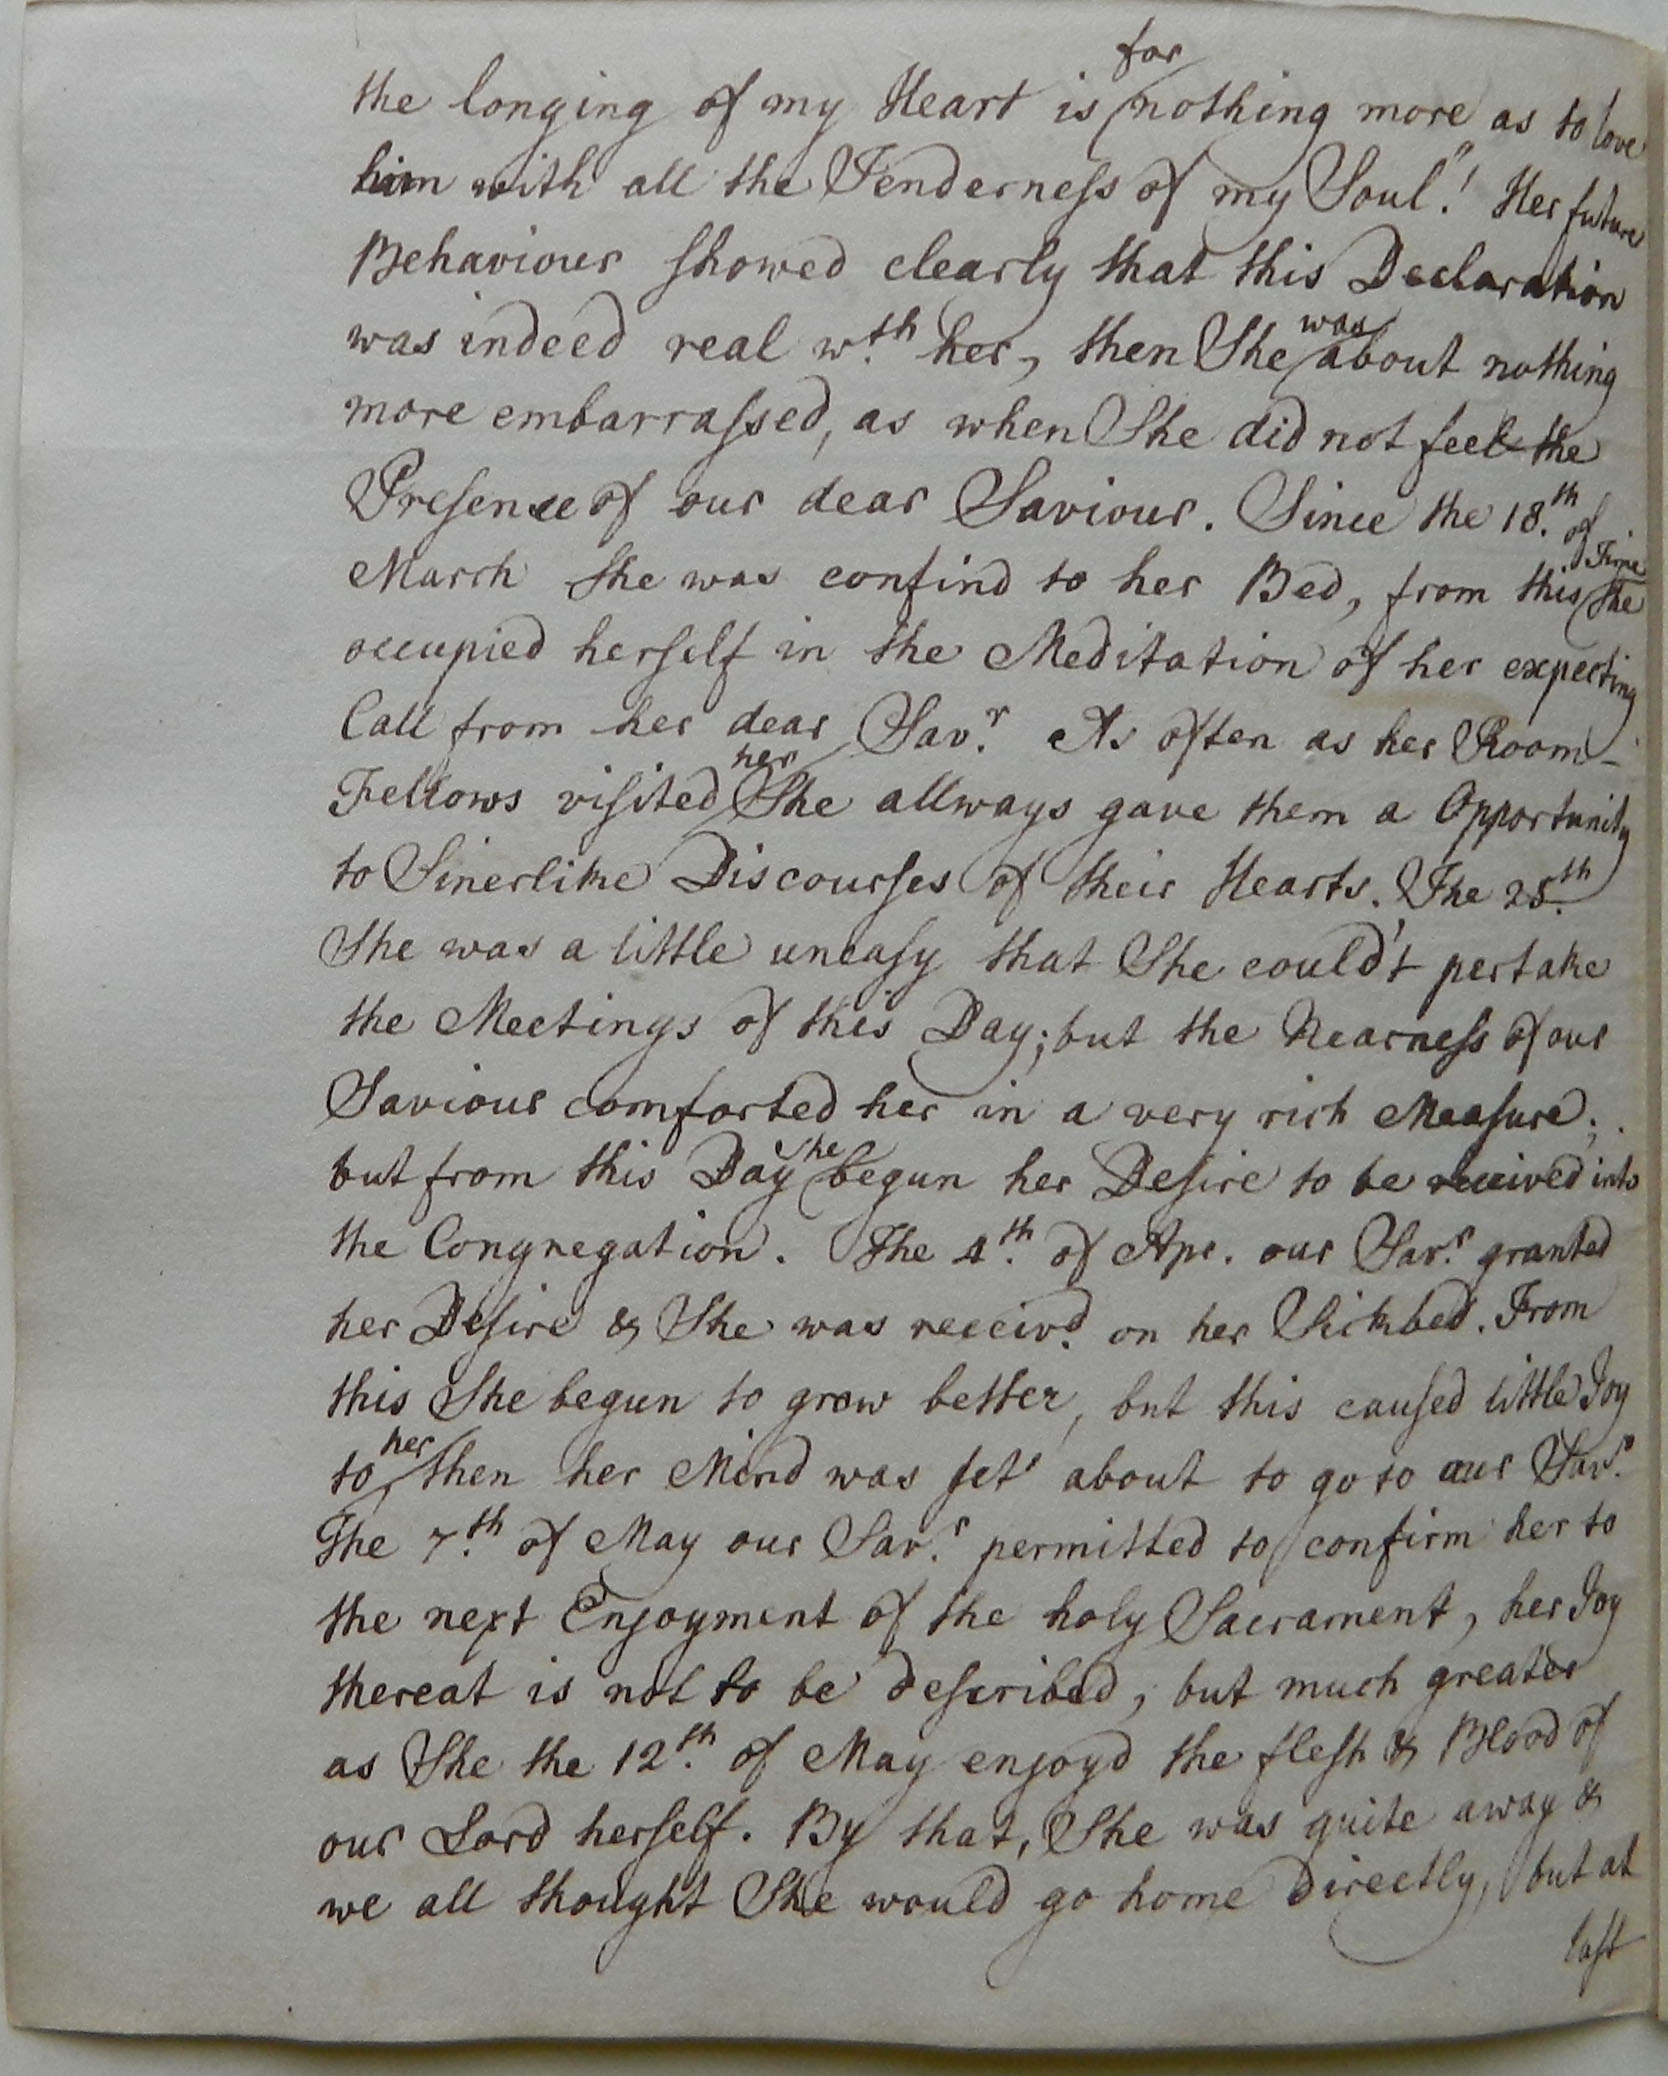 the longing of my Heart is for nothing more as to love
him with all the Tenderness of my Soul"! Her future
Behaviour showed clearly that this Declaration
was indeed real wth her, then She was about nothing
more embarrassed, as when She did not feel the
Presence of our dear Saviour. Since the 18th of
March She was confind to her Bed, from this Time She
occupied herself in the Meditation of her expecting
Call from her dear Savr. As often as her Room-
Fellows visited her She allways gave them a Opportunity
to Sinerlike Discourses of their Hearts. The 25th
She was a little uneasy that She could't pertake
the Meetings of this Day; but the Nearness of our
Saviour comforted her in a very rich Measure;
but from this Day She begun her Desire to be received into
the Congregation. The 4th of Apr. our Savr granted
her Desire & She was receivd on her Sickbed. From
this She begun to grow better, but this caused little Joy
to her, then her Mind was set about to go to our Savr.
The 7th of May our Savr permitted to confirm her to
the next Enjoyment of the holy Sacrament, her Joy
thereat is not to be described, but much greater
as She the 12th of May enjoyd the flesh & Blood of
our Lord herself. By that, She was quite away &
we all thought She would go home Directly, but at
last